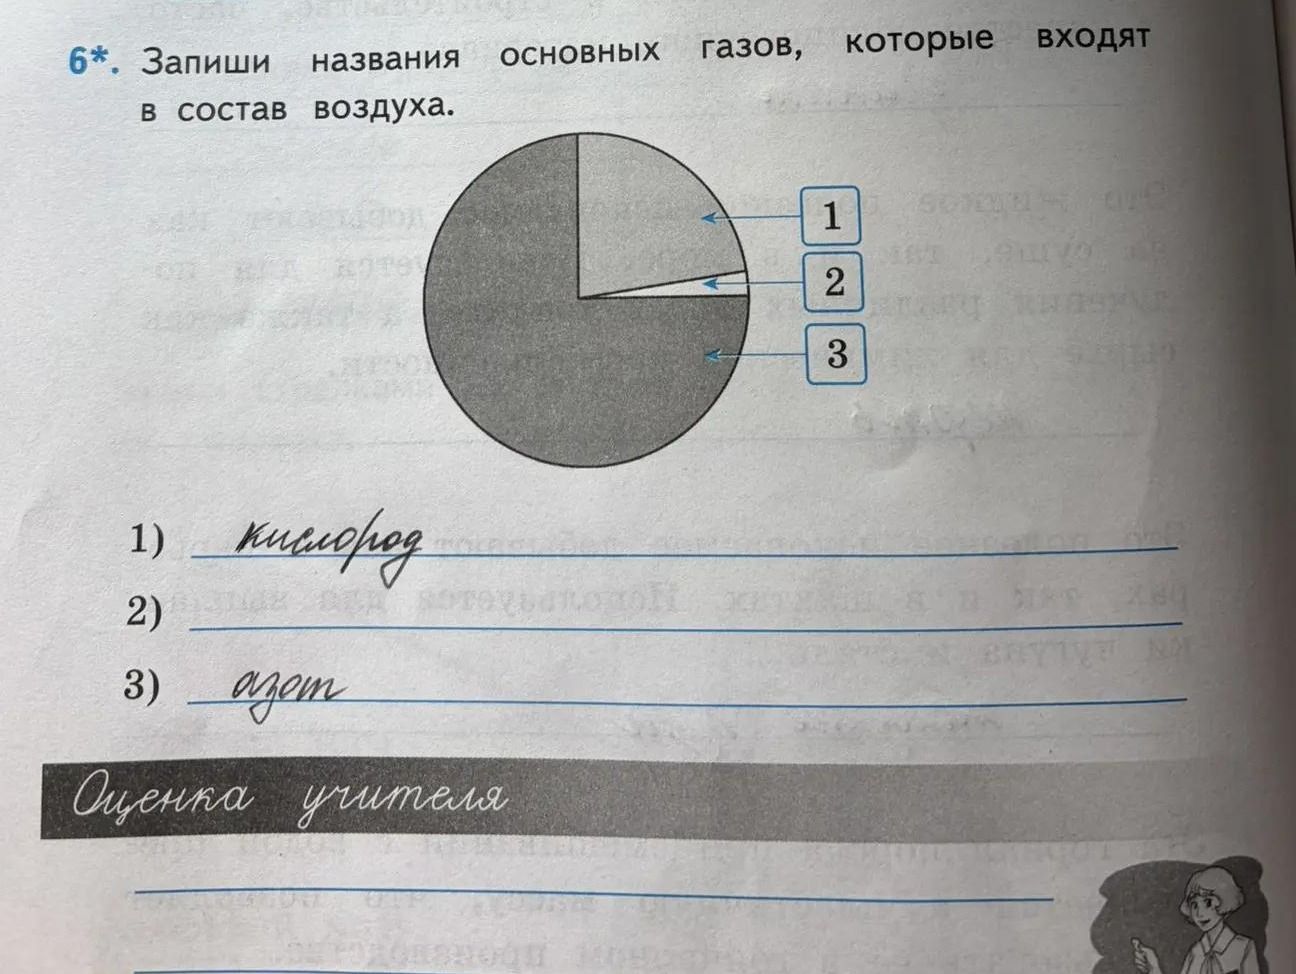 6*. Запиши названия основных газов, которые входят
в состав воздуха.
1
2
3
1) кислород
2)
3) азот
Оценка учителя